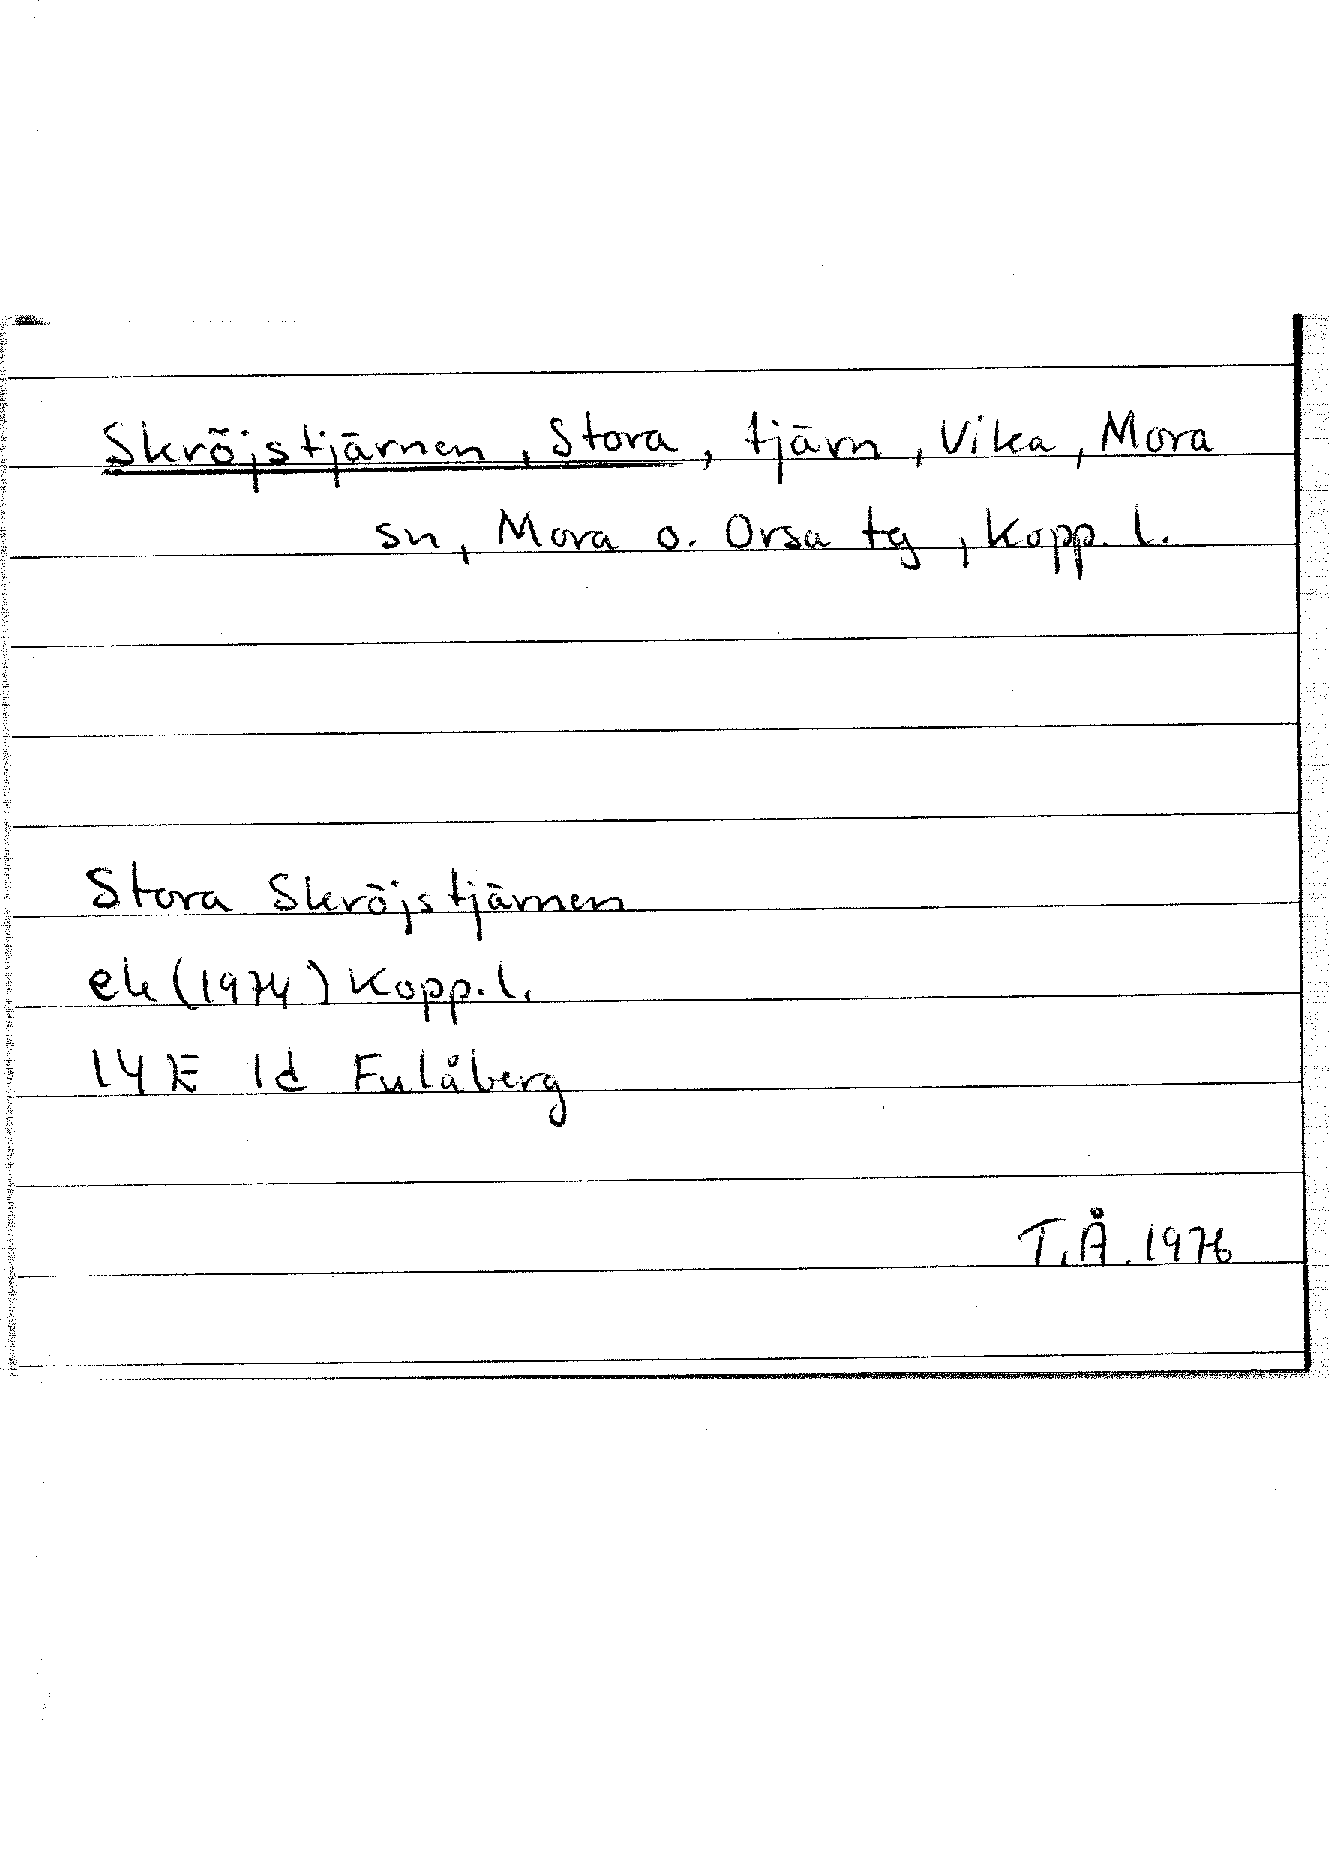 Skröjstjärnen, Stora, tjärn, Vika, Mora
sn, Mora o. Orsa tg, Kopp. l.
Stora Skröjstjärnen
ek (1974) Kopp. l.
14E 1d Fulåberg
T.Å. 1976